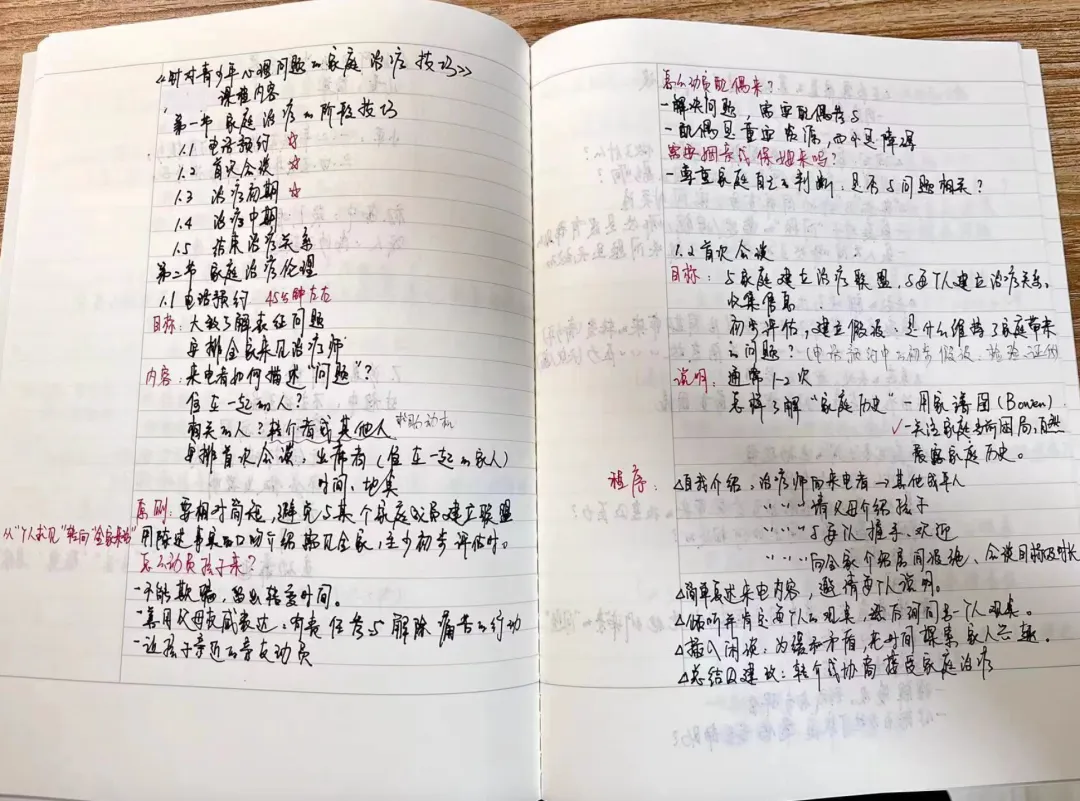 《针对青少年心理问题的家庭治疗技巧》
课程内容
第一节 家庭治疗的阶段技巧
1.1 电话预约 ☆
1.2 首次会谈 ☆
1.3 治疗初期 ☆
1.4 治疗中期
1.5 结束治疗关系
第二节 家庭治疗伦理
1.1 电话预约 45分钟左右
目标：大致了解表征问题
安排全家来见治疗师
内容：来电者如何描述“问题”？
住在一起的人？
有关的人？转介者或其他人 求助动机
安排首次会谈：出席者（住在一起的家人）
时间、地点
原则：要相对简短，避免与某个家庭成员建立联盟
从“个人求见”转向“全家来谈” 用陈述事实的口吻介绍需见全家，至少初步评估时。
怎么动员孩子来？
-不能欺骗，留出转变时间。
-善用父母权威表达：有责任参与解除痛苦的行动
-让孩子亲近的亲友动员
怎么动员配偶来？
-解决问题，需要配偶参与
-配偶是重要资源，而不是障碍
需要姻亲或保姆来吗？
-尊重家庭自己的判断：是否与问题相关？
1.2 首次会谈
目标：与家庭建立治疗联盟，与每个人建立治疗关系。
收集信息
初步评估，建立假设：是什么维持了家庭带来
的问题？（电话预约中的初步假设，检验、证例
说明：通常1-2次
怎样了解“家庭历史”-用家谱图（Bowen）
✓-关注家庭当前困局，自然
暴露家庭历史。
程序：△自我介绍：治疗师向来电者→其他成年人
〃 〃 〃 请父母介绍孩子
〃 〃 〃 与每人握手、欢迎
〃 〃 〃 向全家介绍房间设施、会谈目标及时长
△简单复述来电内容，邀请每个人说明。
△倾听并肯定每个人的观点，然后询问另一个人观点。
△插入闲谈：为缓和矛盾，花时间探索家人兴趣。
△总结及建议：转介或协商接受家庭治疗